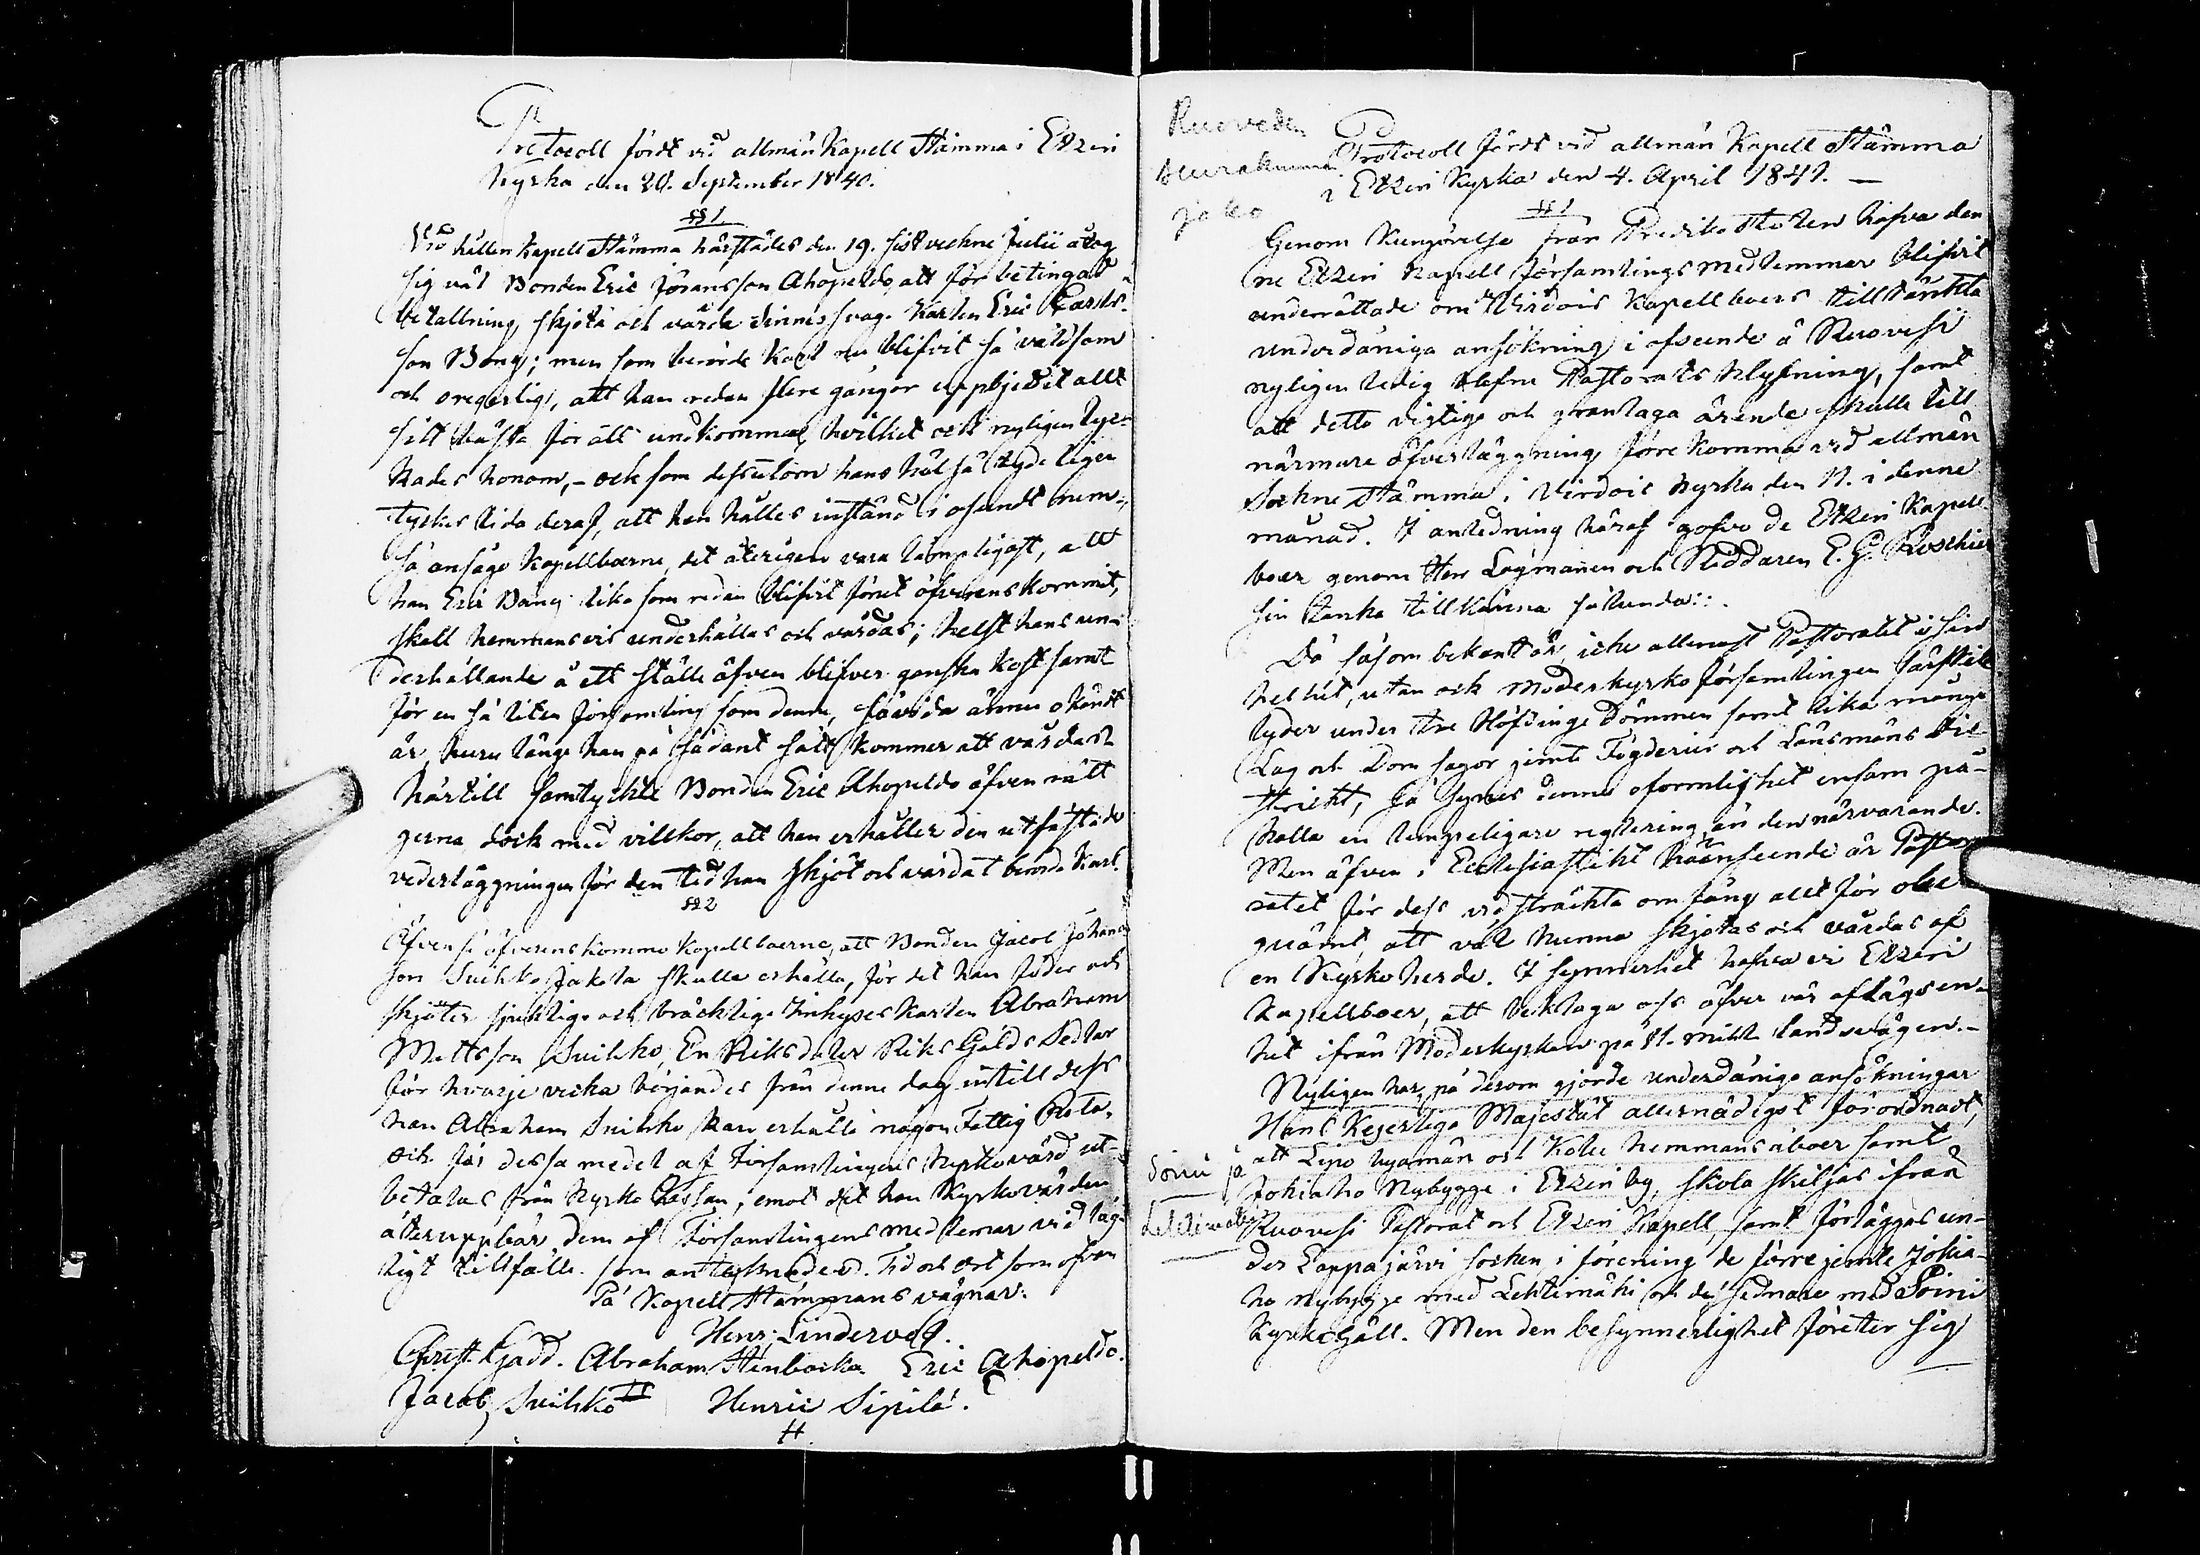 Protocoll fördt vid allmän Kapell Stämma i Etzeri
Kyrka den 20. September 1840.
§§ 1.
Vid hållen Kapell Stämma härstädes den 19. sistvekne Julii åtog
sig väl Bonden Eric Jöransson Ahopeldo, att för betingad
betallning, skjöta och vårda sinnessvage Karlen Eric Carls-
son Bang; men som berörde Karl nu blifvit så våldsam
och oregerlig, att han redan flere gånger uppbjudit allt
sitt bästa för att undkomma, hvilket ock nyligen lyc-
kades honom, – och som dessutom hans hälsa tydeligen
tyckes lida deraf, att han hålles instängd i osundt rum,
så ansågo Kapellboerne, det återigen vara lämpeligast, att
han Eric Bang lika som redan blifvit förut öfverenskommit,
skall hemmansvis underhållas och vårdas; helst hans un-
derhållande å ett ställe äfven blifver ganska kostsamt
för en så liten församling som denna, såvida ännu okändt
är, huru länge han på sådant sätt kommer att vårdas.
Härtill samtyckte Bonden Eric Ahopeldo äfven rätt
gerna, dock med villkor, att han erhåller den utfästade
vederläggningen för den tid han skjöt och vårdat berörde Karl.
§§ 2
Äfven så öfverenskommo Kapellboerne, att Bonden Jacob Johans-
son Suihko Jakola skulle erhålla, för det han föder och
skjöter sjuklige och bräcklige Inhyses Karlen Abraham
Mattsson Suihko, En Riksdaler Riks Gälds Sedlar
för hvarje vecka börjandes från denne dag intill dess
han Abraham Suihko kan erhålla någon Fattig Rota,
och får dessa medel af Församlingens Kyrkovärd ut-
betalas från Kyrko Cassan, emot det han Kyrkovärden
återuppbär dem af Församlingens medlemar vid läg-
ligt tillfälle. som antecknades. Tid och Ort som ofvan
På Kapell Stämmans vägnar:
Henr: Lindervall.
Christ. Gadd. Abraham Stenbacka Eric Ahopeldo.
Jacob Suihko Henric Sipilä.
Ruoveden
seurakunnan
jako
Protocoll fördt vid allmän Kapell Stämma
i Etzeri Kyrka den 4. April 1841. —
§§ 1
Genom Kungörelse från Prediko Stolen hafva den-
ne Etzeri Kapell Församlings medlemmar blifvit
underrättade om Virdois Kapellboers tilltänkta
underdåniga ansökning i afseende å Ruovesi
nyligen ledig blefne Pastorats klyfning, samt
att detta vigtiga och grannlaga ärende skulle till
närmare öfverläggning förekomma vid allmän
Sockne Stämma i Virdois Kyrka den 11. i denne
månad. I anledning häraf gofvo de Etzeri Kapell-
boer genom Herr Lagmannen och Riddaren E. G. Roschier
sin tanka tillkänna sålunda:
Då såsom bekant är, icke allenast Pastoratet i sin
helhet, utan ock Moderkyrko församlingen särskilt
lyder under tre Höfdinge Dömmen samt lika många
Lag och Dom sagor jemte Fögderier och Länsmäns Dis-
trickt, så synes denna oformlighet ensam på-
kalla en lämpeligare reglering, än den närvarande.
Men äfven i Ecclesiastikt hänseende är Pasto-
ratet för dess vidsträckta omfång allt för obe-
quämt, att väl kunna skjötas och vårdas af
en Kyrkoherde. I synnerhet hafva vi Etzeri
Kapellboer, att beklaga oss öfver vår aflägsen-
het ifrån Moderkyrkan på 11. mihl landsvägen. –
Nyligen har, på derom gjorde underdånige ansökningar
Hans Kejserliga Majestät allernådigst förordnadt,
att Lipo byamän och Kolu hemmans åboer samt
Jokiaho Nybygge i Etzeri by, skola skiljas ifrån
Ruovesi Pastorat och Etzeri Kapell, samt förläggas un-
der Lappajärvi socken, i förening de förre jemte Jokia-
ho nybygge med Lehtimäki och de sednare med Soini
Kyrko Gäll. Men den besynnerlighet företer sig
Soini ja
Lehtimäki